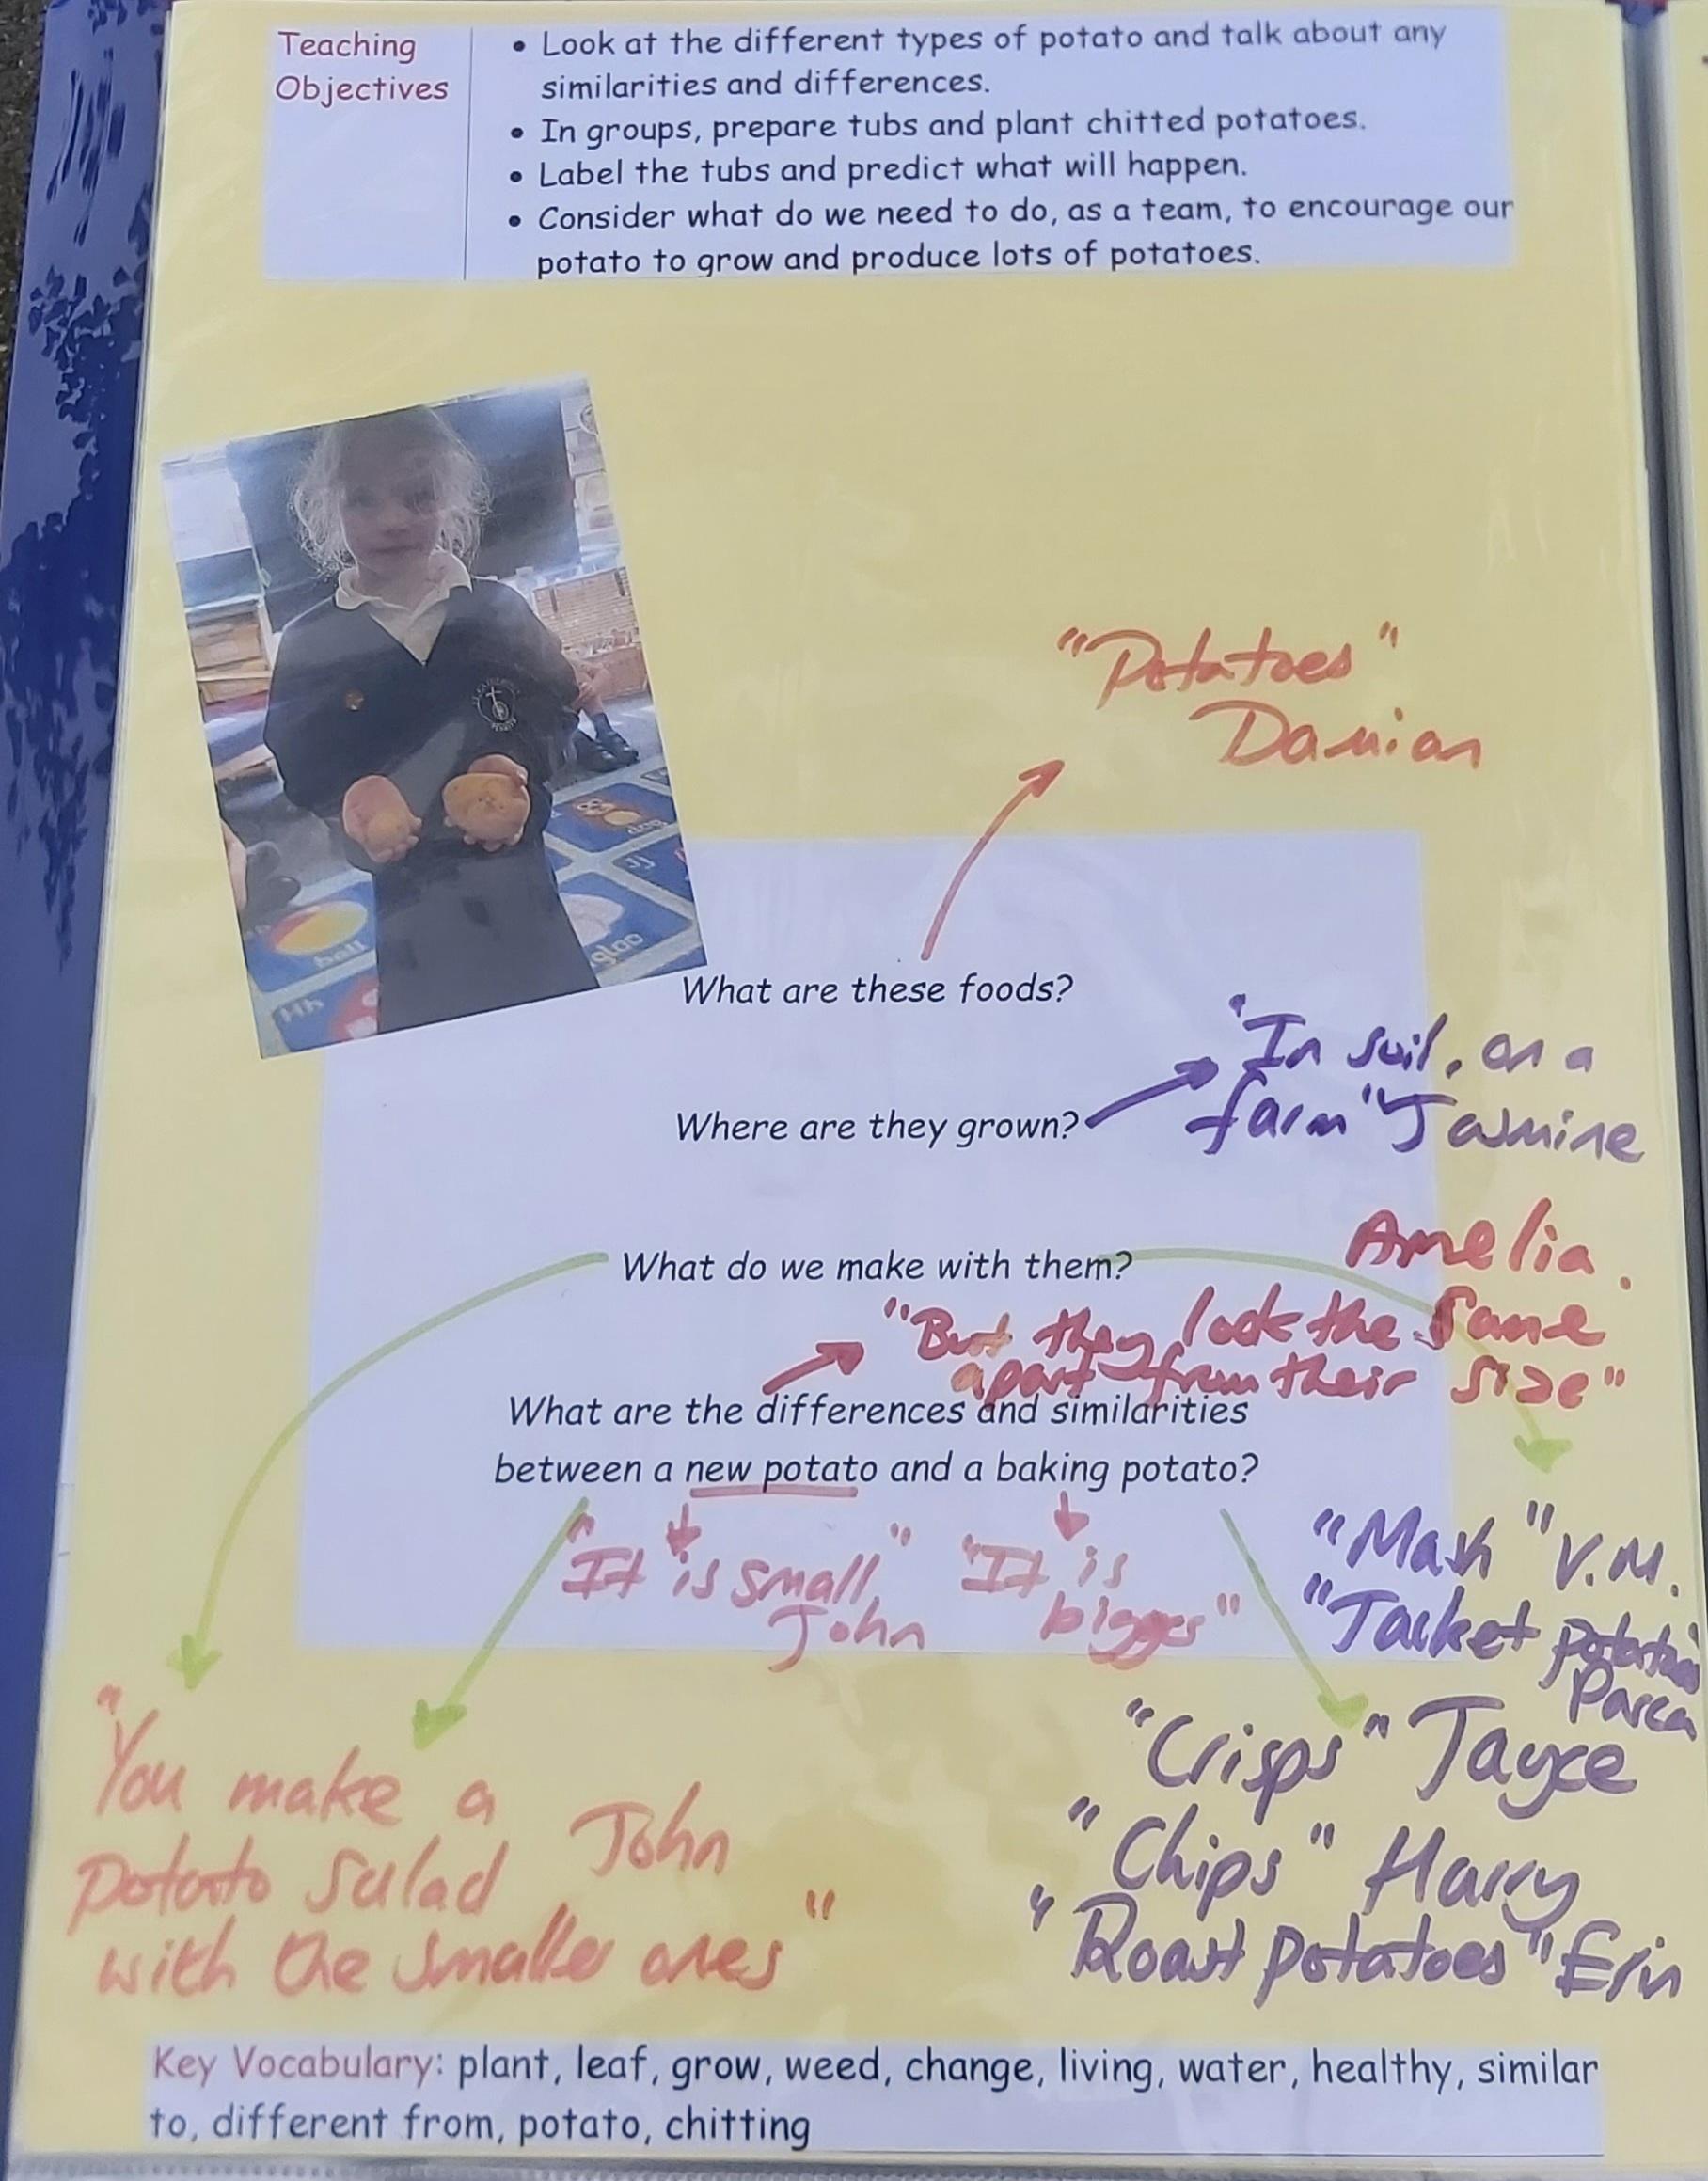 Teaching
Objectives
• Look at the different types of potato and talk about any
similarities and differences.
• In groups, prepare tubs and plant chitted potatoes.
• Label the tubs and predict what will happen.
• Consider what do we need to do, as a team, to encourage our
potato to grow and produce lots of potatoes.
"Potatoes"
Damian
ball
igloo
dog
Jj
Hh
What are these foods?
"In soil, on a
farm" Jasmine
Where are they grown?
Amelia.
What do we make with them?
"But they look the same
apart from their size"
What are the differences and similarities
between a new potato and a baking potato?
"It is small"
John
"It is
bigger"
"Mash" V.M.
"Jacket
"Crisps" Jayce
"Chips" Harry
"Roast potatoes" Erin
"You make a
potato salad
with the smaller ones"
John
Key Vocabulary: plant, leaf, grow, weed, change, living, water, healthy, similar
to, different from, potato, chitting